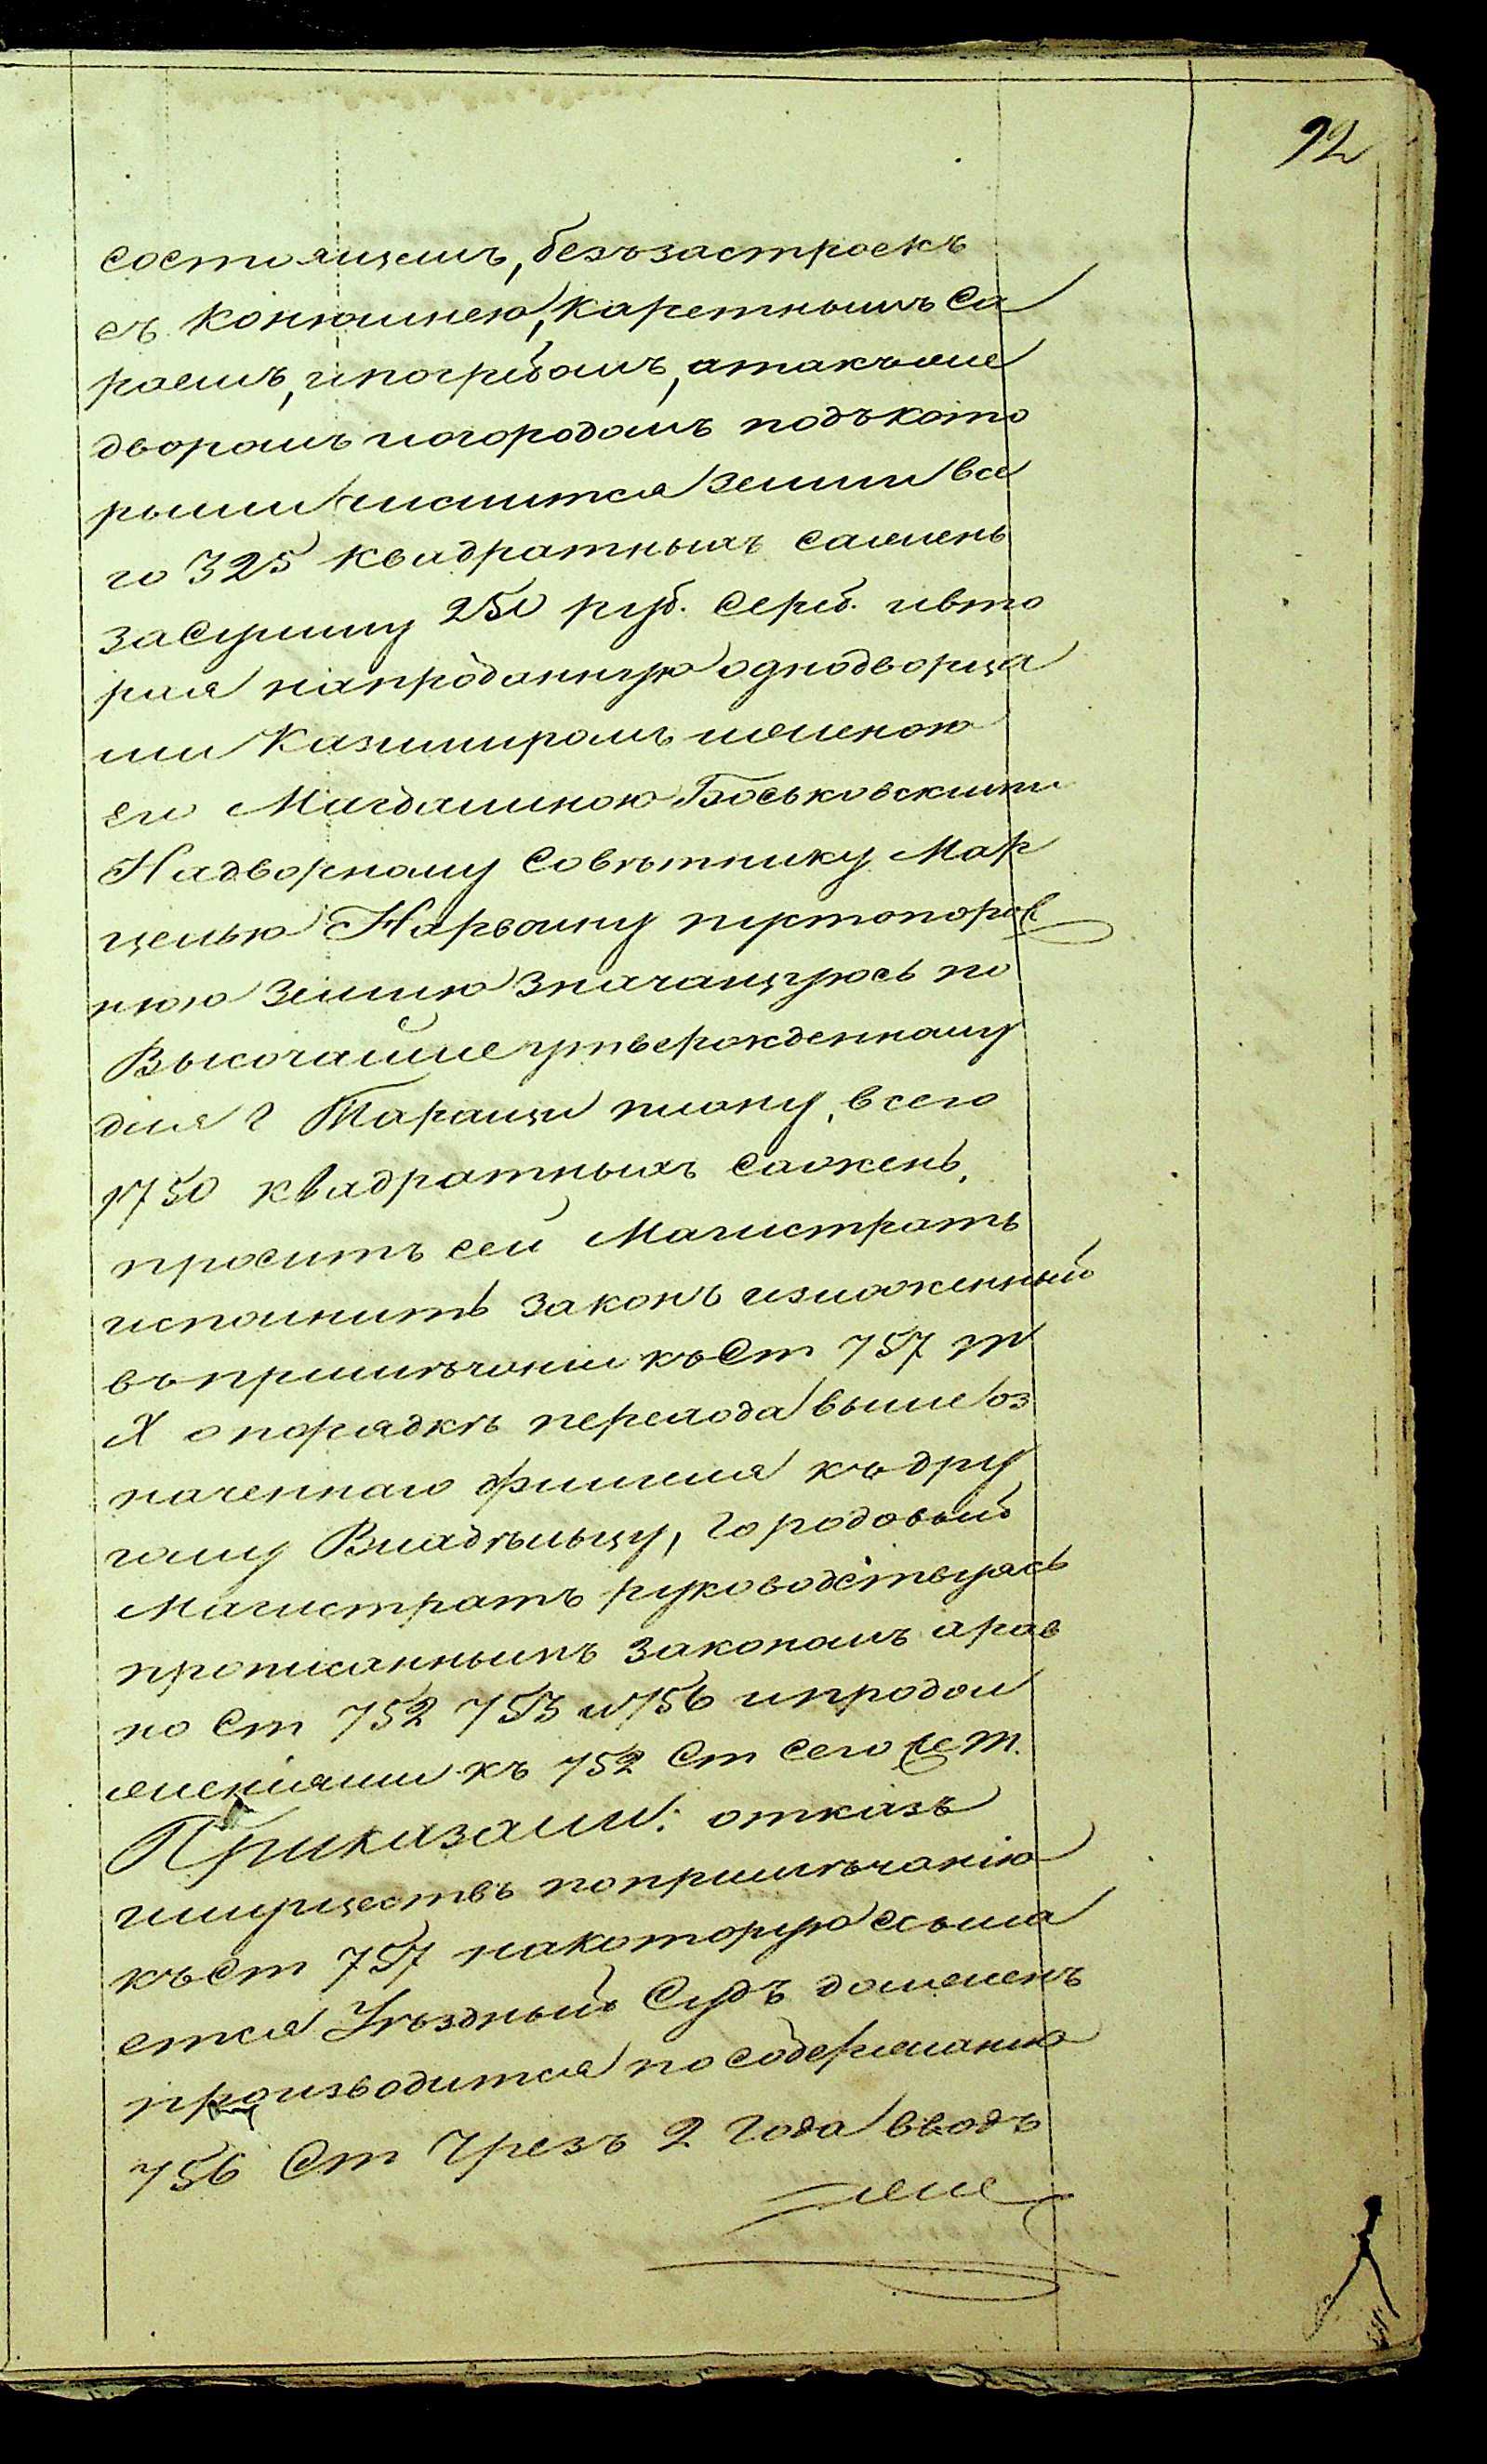 92
состоящемъ, безъ застроекъ
съ конюшнею, каретнымъ са
раемъ, и погребомъ, а такъ же
дворомъ и огородомъ подъ кото
рыми числится земли все
го 325 квадратныхъ сажень
за сумму 250 руб. сереб. и вто
рая на проданную однодворца
ми Казимиромъ и женою
его Магдалиною Боськовскими
Надворному Совѣтнику Мар
целью Нарвоину пустопорож
нюю землю значащуюсь по
Высочайше утвержденному
для г Таращи плану, всего
1750 квадратныхъ сажень,
проситъ сей Магистратъ
исполнить законъ изложенный
въ примѣчаніи къ Ст 757 Т
X о порядкѣ перехода выше оз
наченнаго имѣнія къ дру
гому Владѣльцу, Городовый
Магистратъ руководствуясь
прописаннымъ закономъ а рав
но Ст 752 753 и 756 и продол
женіями къ 752 Ст сего же Т.
Приказали: отказъ
имуществъ по примѣчанію
къ Ст 757 на которую ссыла
ется Уѣздный Судъ долженъ
производится по содержанію
756 Ст Чрезъ 2 года вводъ
же